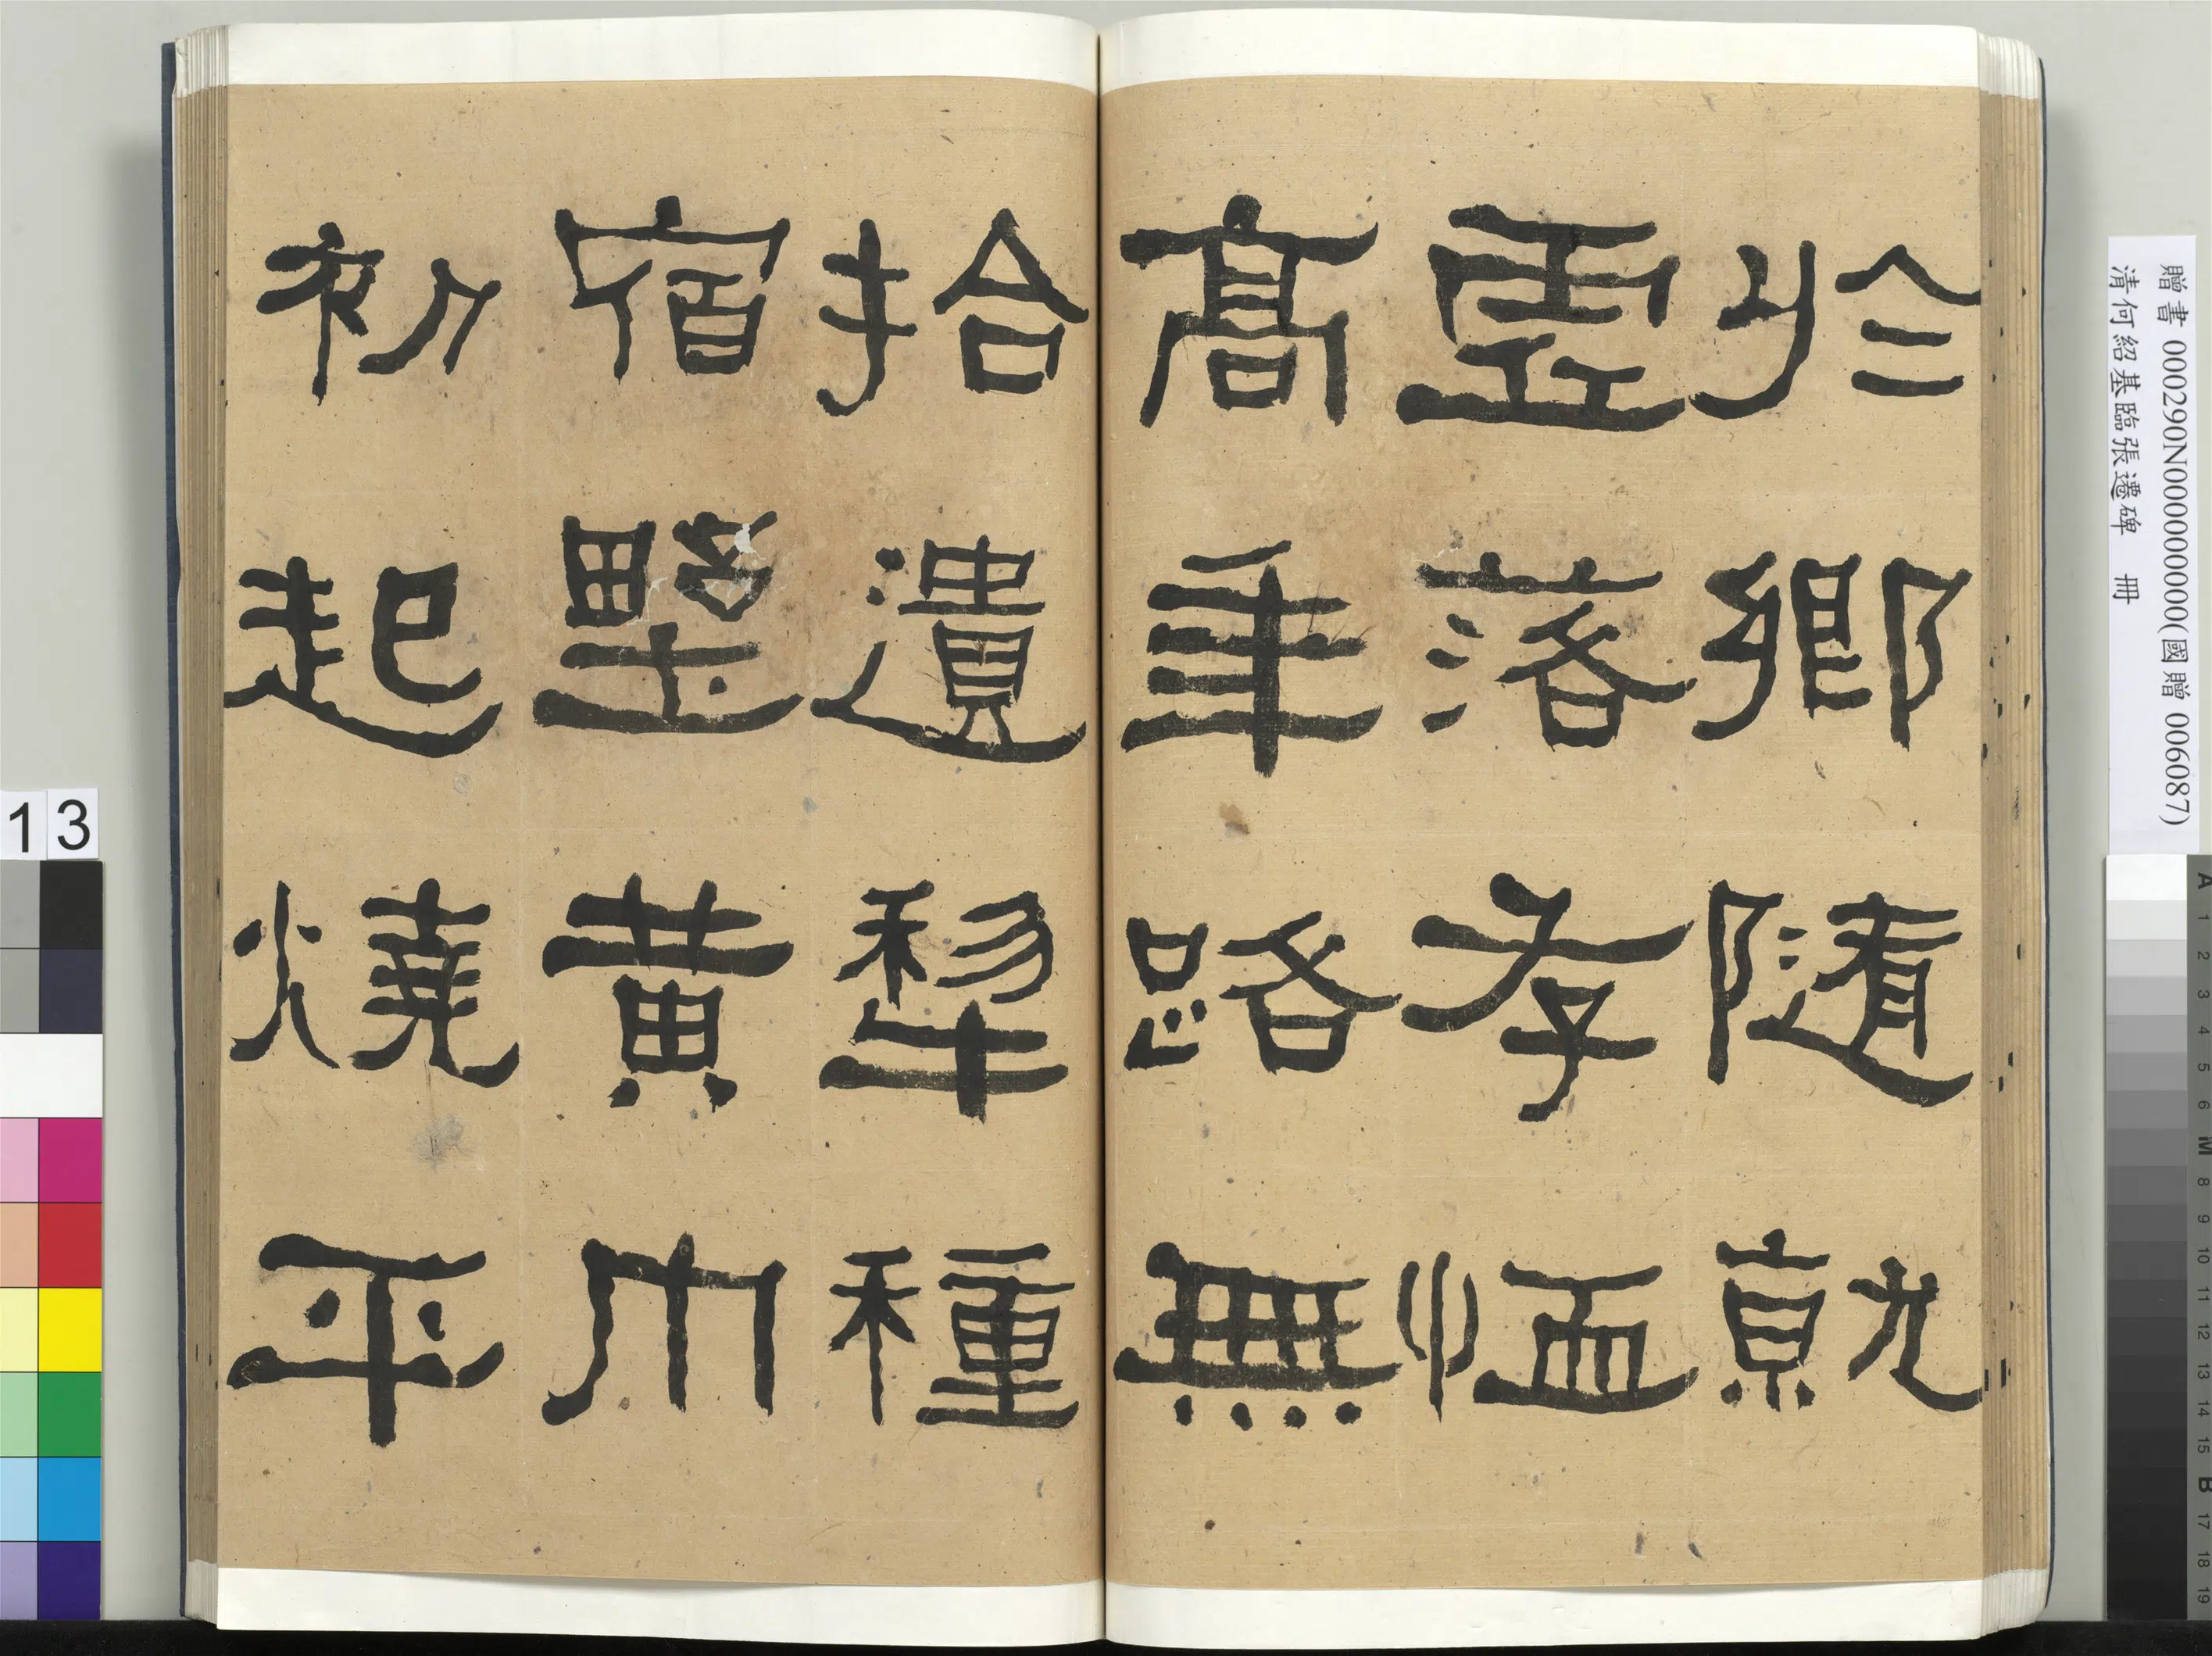 贈書 000290N000000000(國贈 006087)
清何紹基臨張遷碑 冊
於鄉隨就
虛落存恤
高年路無
拾遺犁種
宿野黃巾
初起燒平
13
A 1 2 3 4 5 6 M 8 9 10 11 12 13 14 15 B 17 18 19